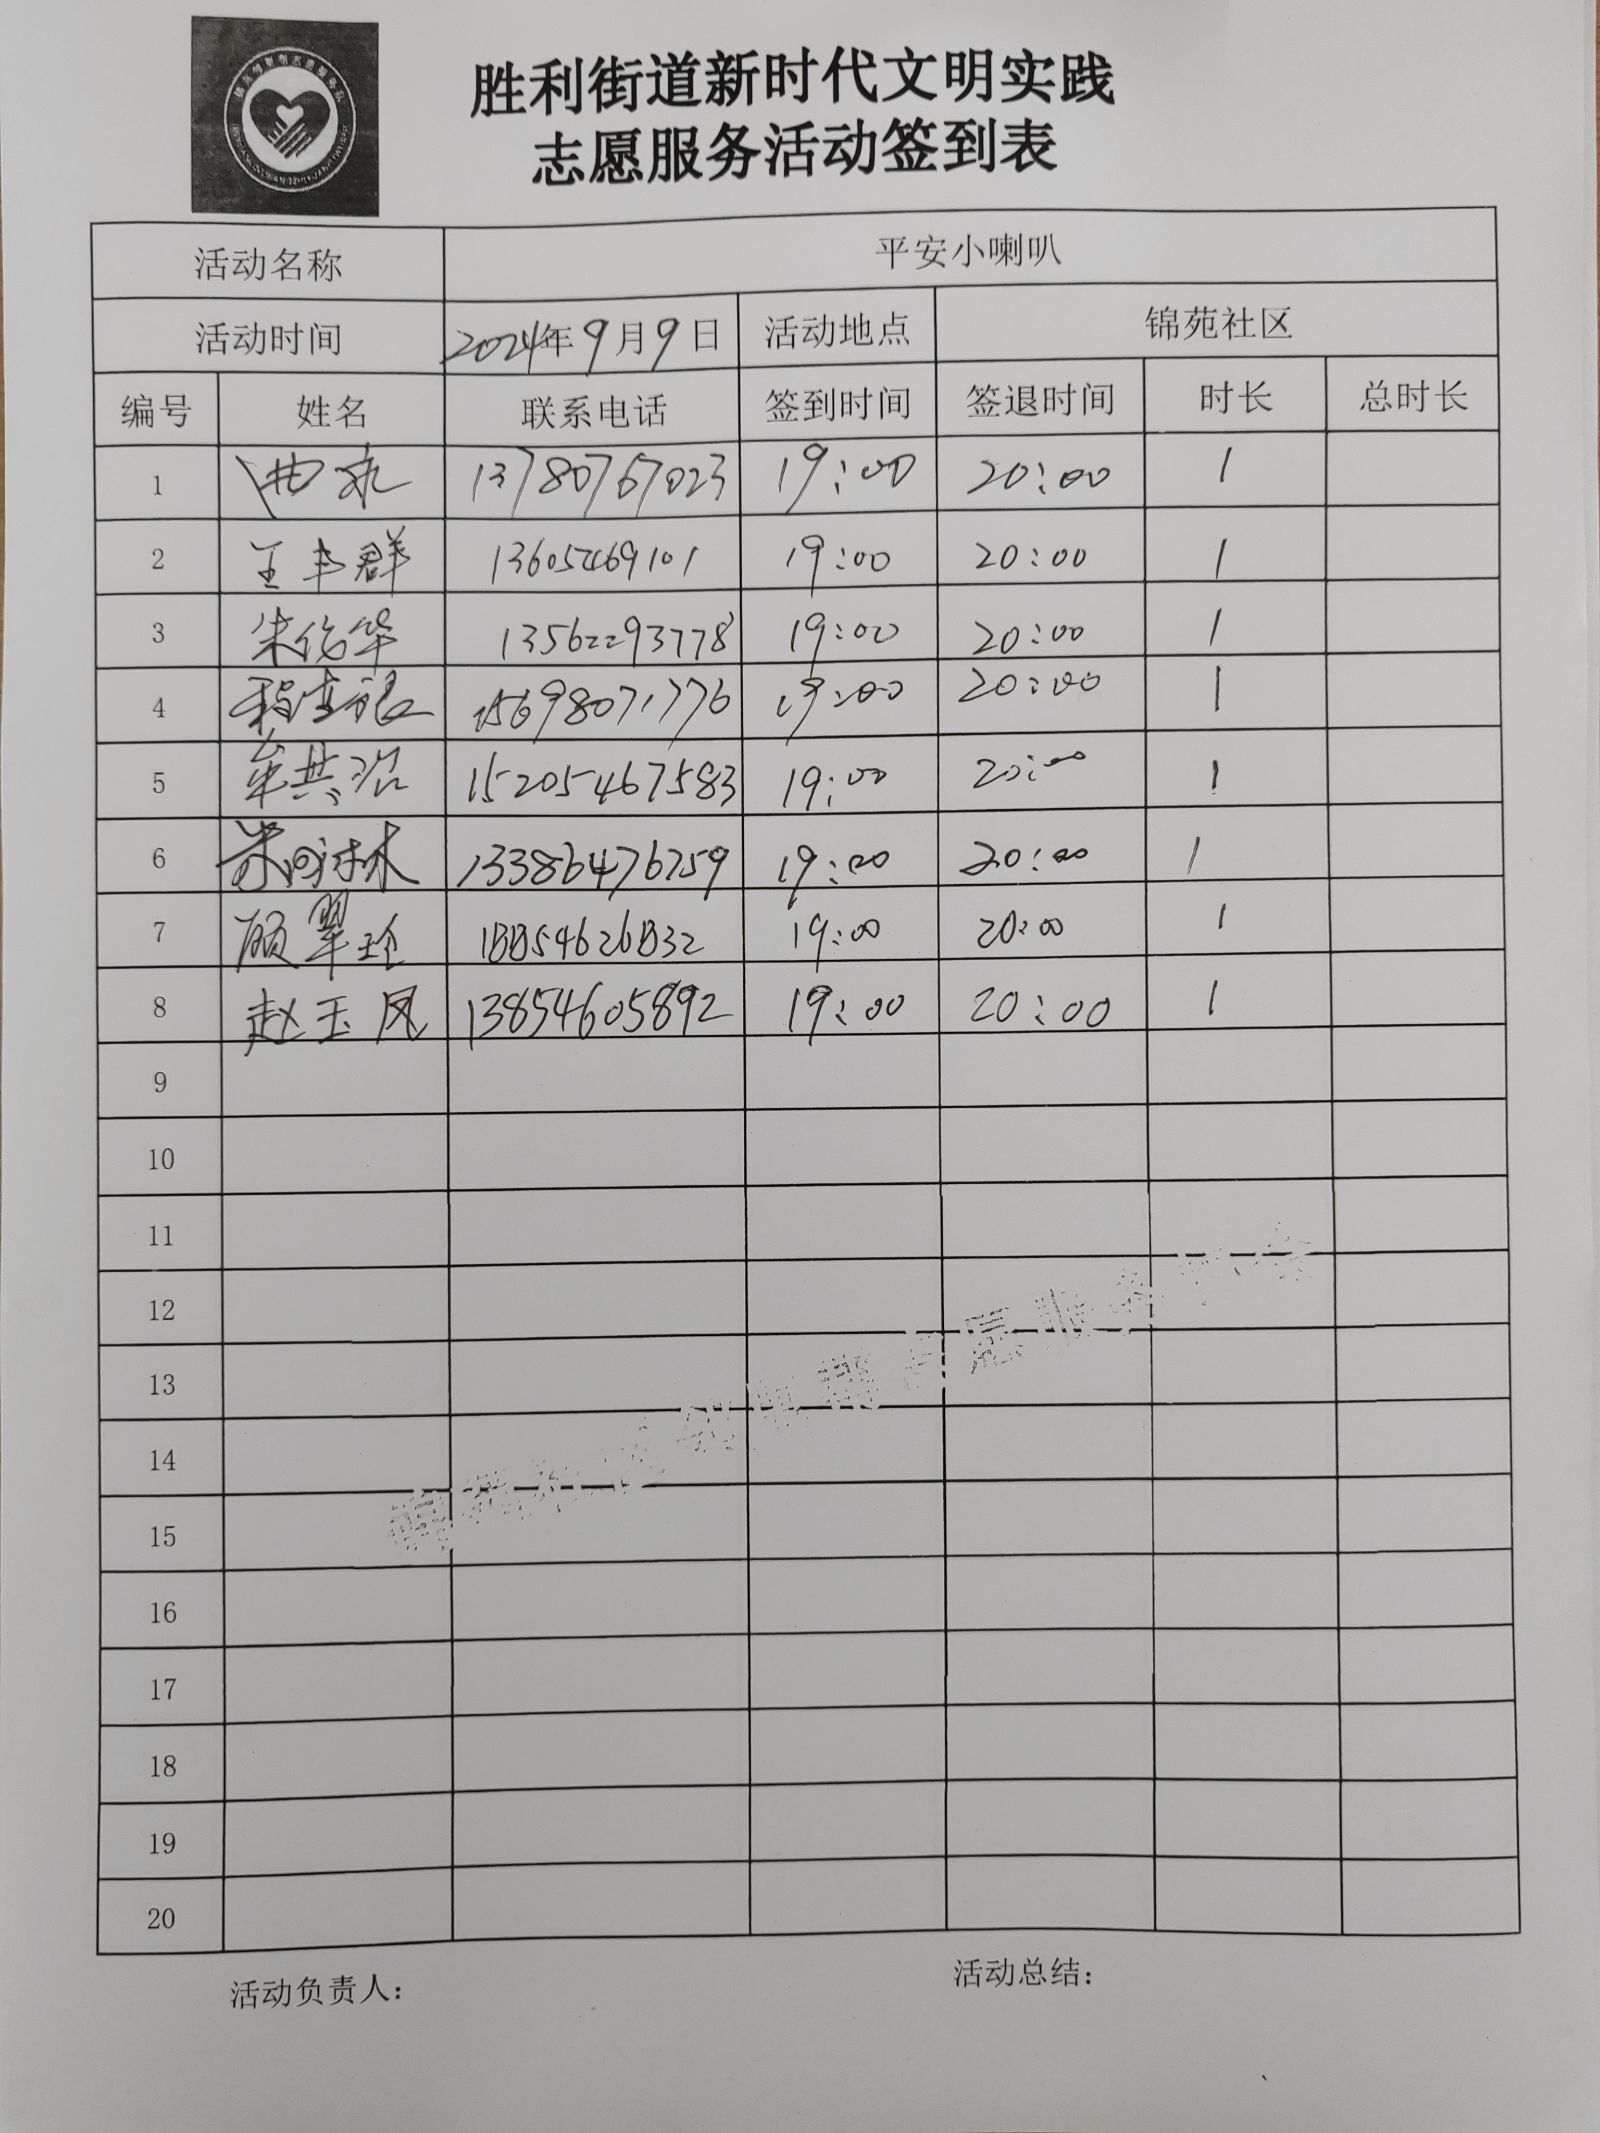 胜利街道新时代文明实践
志愿服务活动签到表
活动名称 平安小喇叭
活动时间 2024年9月9日 活动地点 锦苑社区
编号 姓名 联系电话 签到时间 签退时间 时长 总时长
1 13780767023 19:00 20:00 1
2 王丰群 13605469101 19:00 20:00 1
3 朱俊华 13562293778 19:00 20:00 1
4 15698071776 19:00 20:00 1
5 牟其 15205467583 19:00 20:00 1
6 13386476759 19:00 20:00 1
7 顾翠玲 19:00 20:00 1
8 赵玉凤 13854605892 19:00 20:00 1
9
10
11
12
13
14
15
16
17
18
19
20
活动负责人: 活动总结: